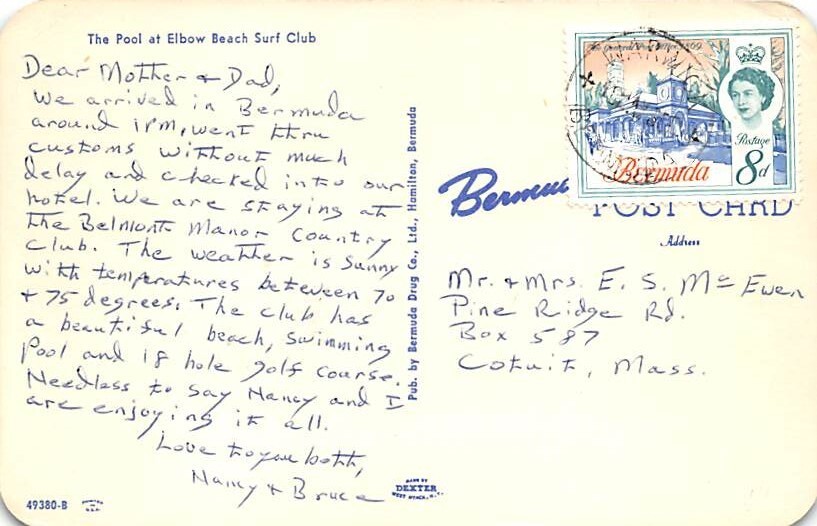 The Pool at Elbow Beach Surf Club
Dear Mother + Dad,
We arrived in Bermuda
around 1PM, went thru
customs without much
delay and checked into our
hotel. We are staying at
the Belmont Manor Country
Club. The weather is sunny
with temperatures between 70
+ 75 degrees. The club has
a beautiful beach, swimming
pool and 18 hole golf course.
Needless to say Nancy and I
are enjoying it all.
Love to you both,
Nancy + Bruce
49380-B
Pub. by Bermuda Drug Co., Ltd., Hamilton, Bermuda
MADE BY
DEXTER
WEST NYACK, N.Y.
WARWICK
Bermuda
Postage
8d
Bermu
POST CARD
Address
Mr. + Mrs. E. S. McEwen
Pine Ridge Rd.
Box 587
Cotuit, Mass.